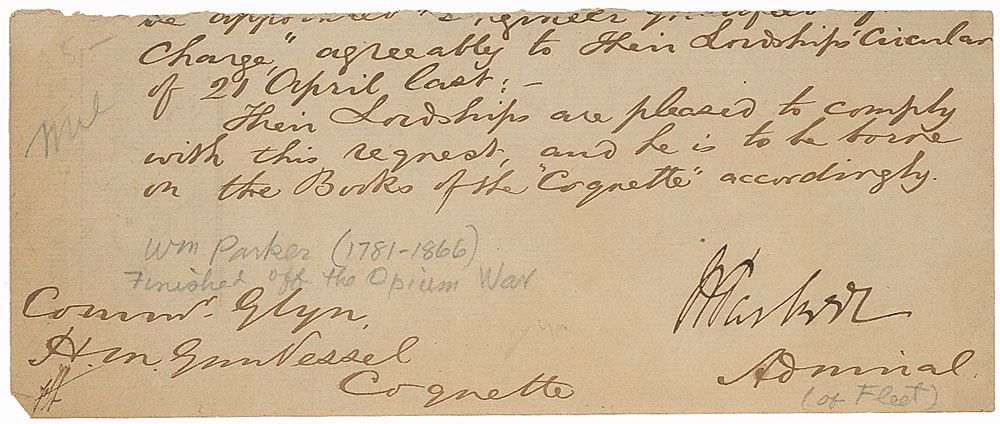 be appointed "Engineer
Charge," agreeably to Their Lordships' Circular
of 21 April last: -
Their Lordships are pleased to comply
with this request, and he is to be borne
on the Books of the "Coquette" accordingly.
Wm Parker (1781-1866)
Finished off the Opium War
Commr. Glyn,
H.M. Gun Vessel
Coquette
WParker
Admiral.
(of Fleet)